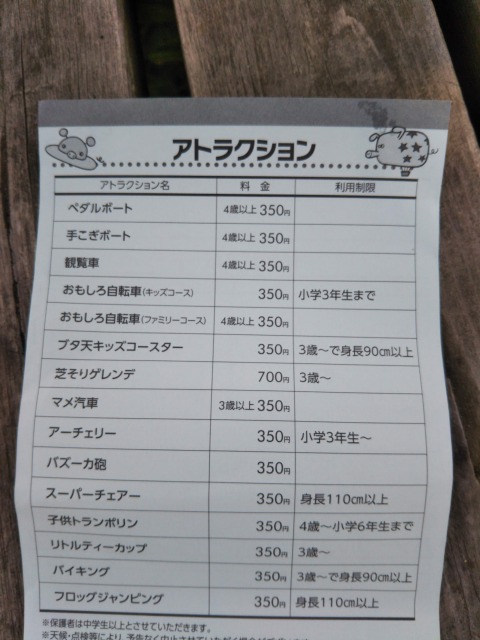 アトラクション
アトラクション名 料 金 利用制限
ペダルボート 4歳以上 350円
手こぎボート 4歳以上 350円
観覧車 4歳以上 350円
おもしろ自転車(キッズコース) 350円 小学3年生まで
おもしろ自転車(ファミリーコース) 4歳以上 350円
ブタ天キッズコースター 350円 3歳〜で身長90㎝以上
芝そりゲレンデ 700円 3歳〜
マメ汽車 3歳以上 350円
アーチェリー 350円 小学3年生〜
バズーカ砲 350円
スーパーチェアー 350円 身長110㎝以上
子供トランポリン 350円 4歳〜小学6年生まで
リトルティーカップ 350円 3歳〜
バイキング 350円 3歳〜で身長90㎝以上
フロッグジャンピング 350円 身長110㎝以上
※保護者は中学生以上とさせていただきます。
※天候・点検等により、予告なく中止させていただく場合が